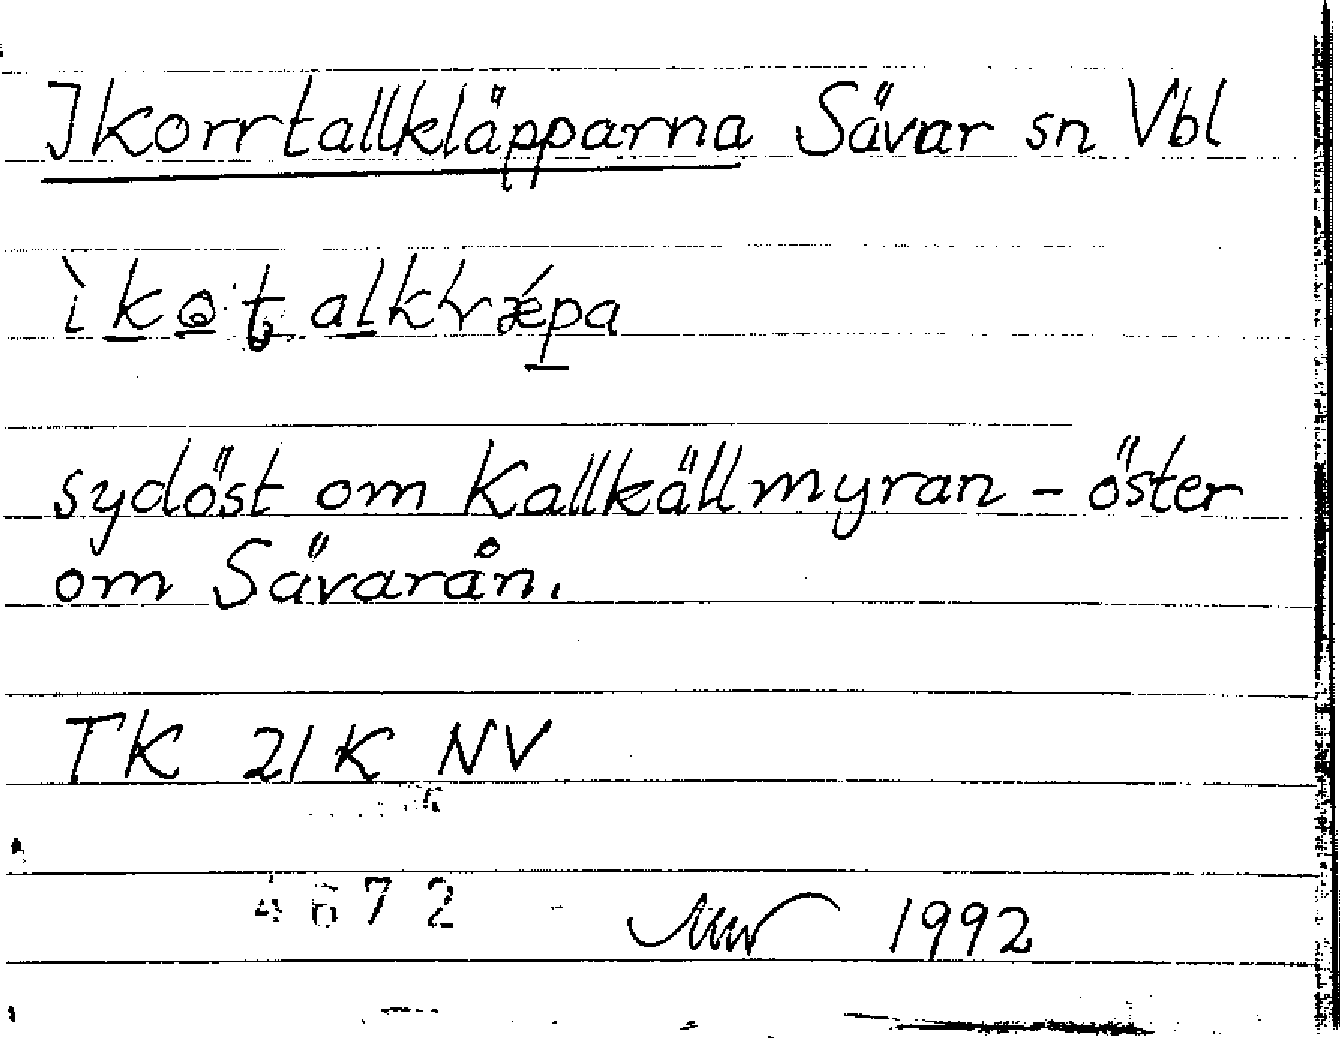 Ikorrtallkläpparna Sävar sn Vbl
sydöst om Kallkällmyran - öster
om Sävarån.
TK 21K NV
4672
1992